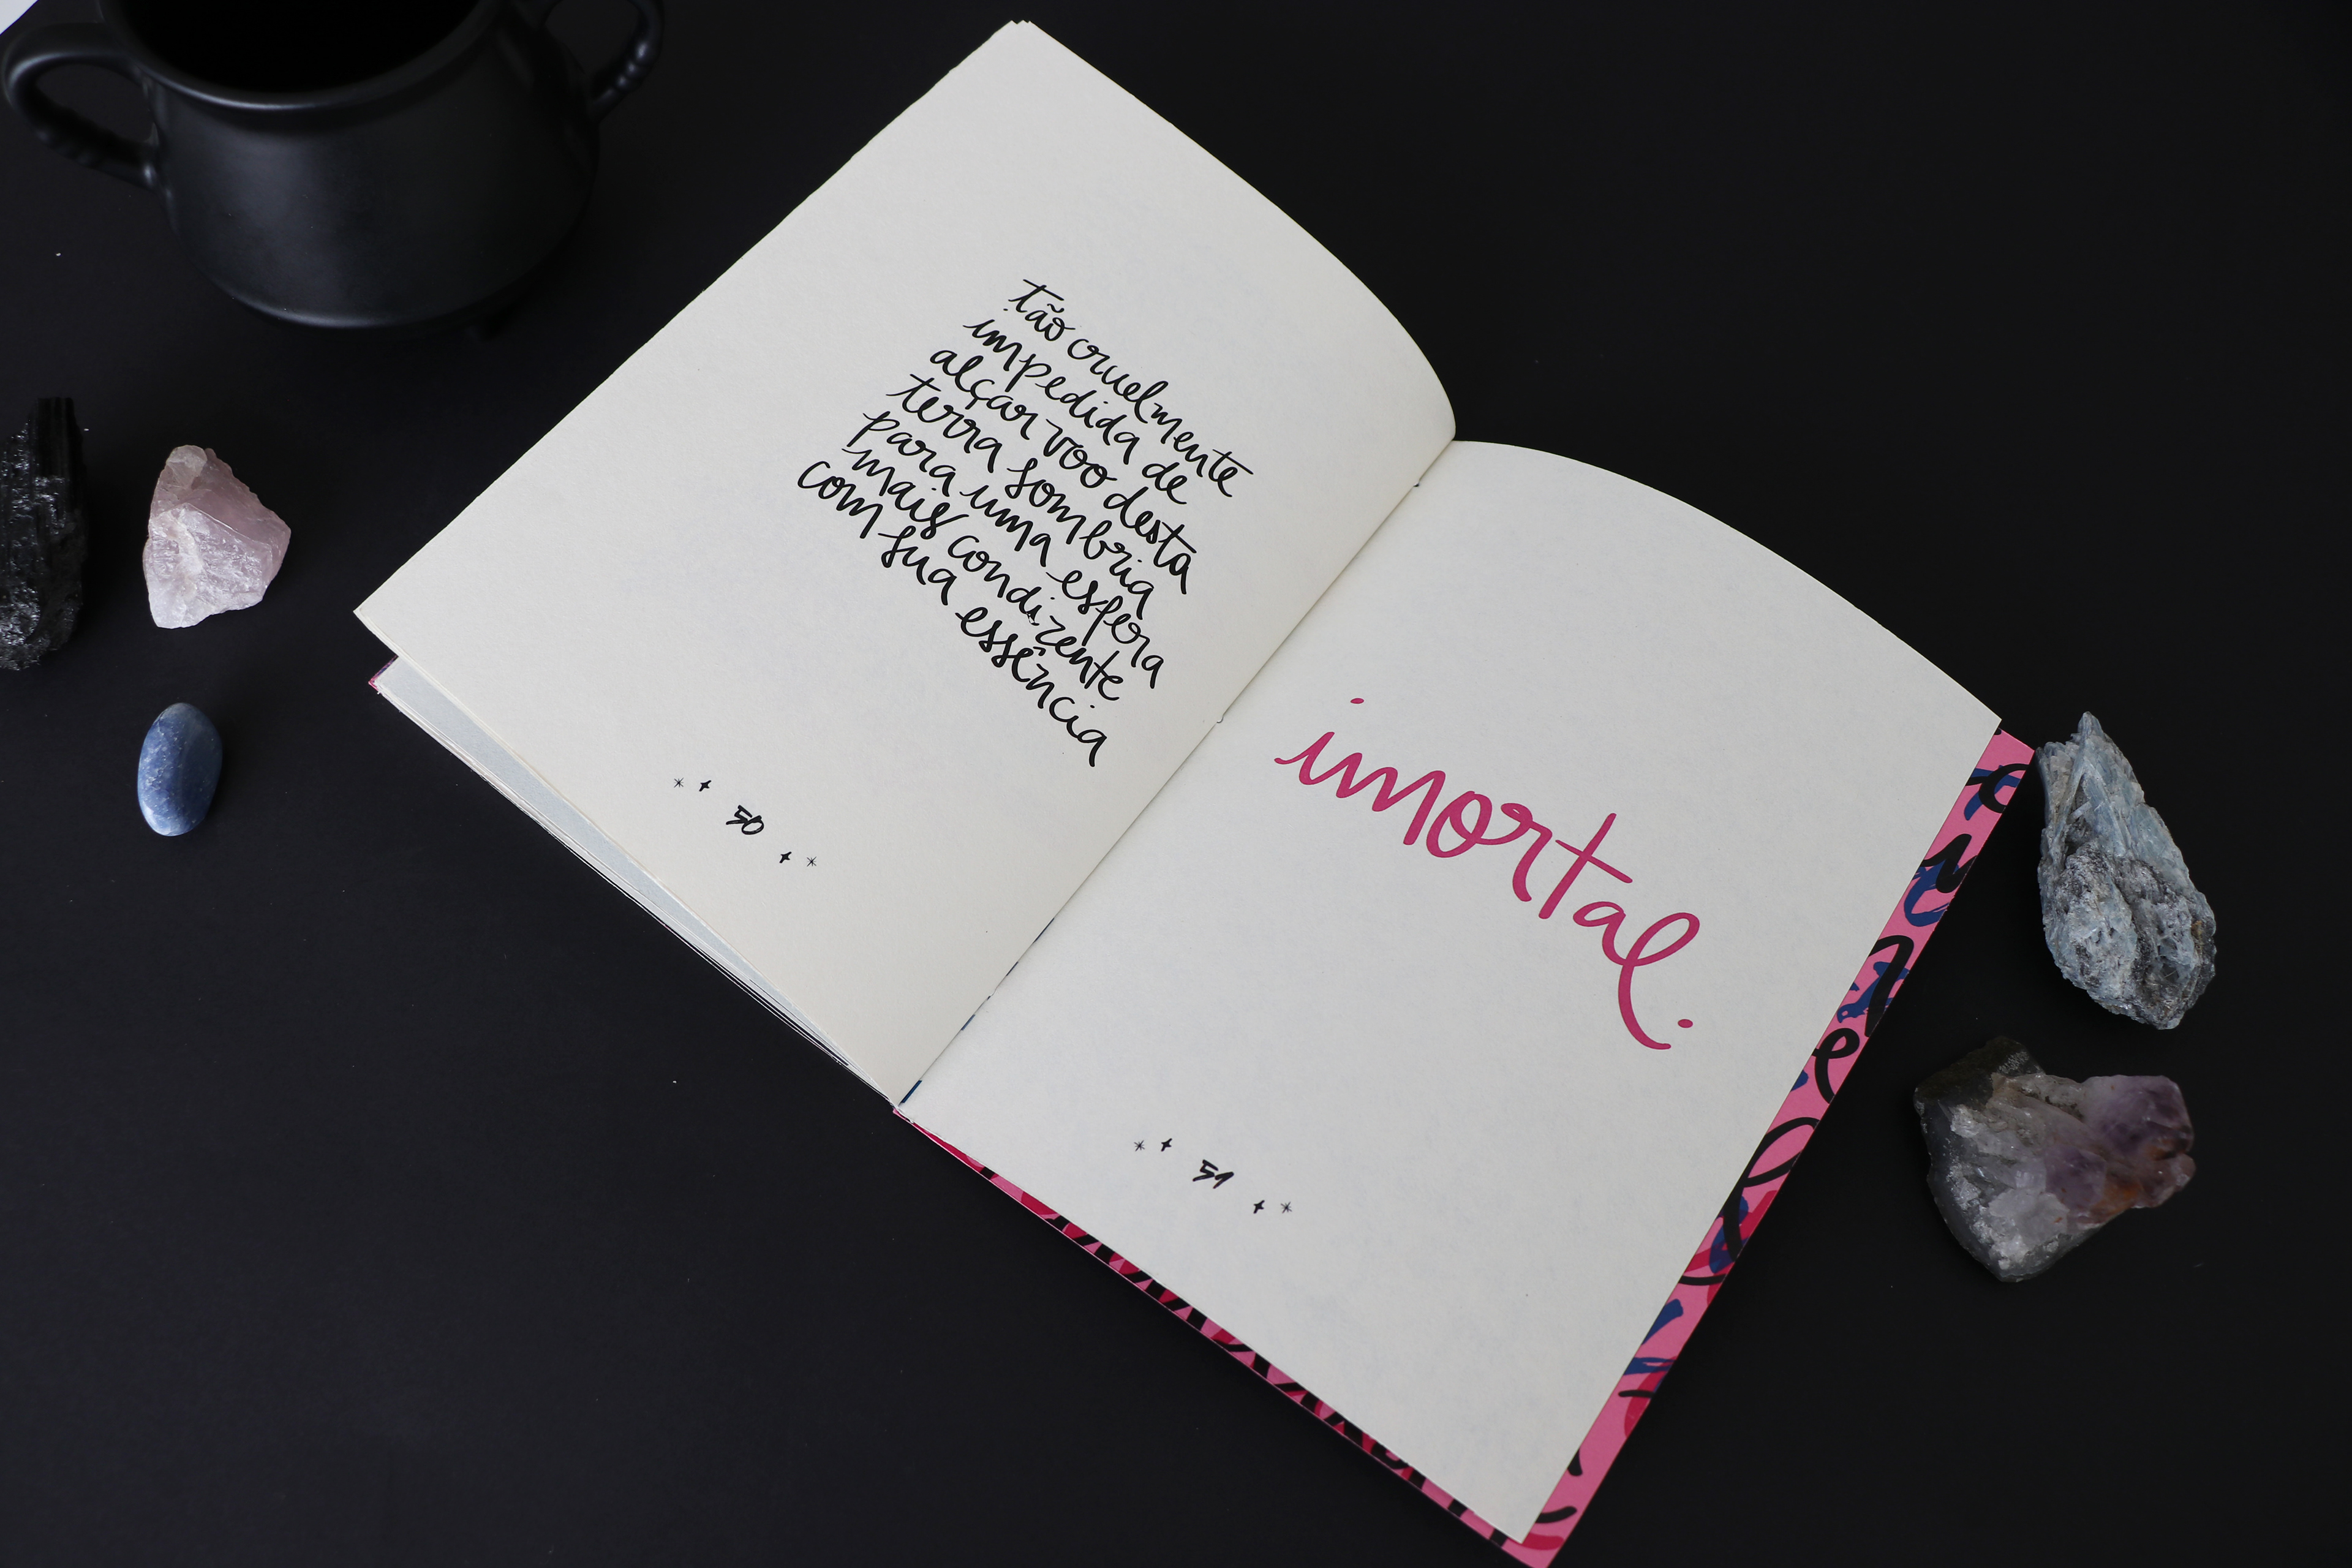 tão cruelmente
impedida de
alçar voo desta
terra sombria
para uma esfera
mais condizente
com sua essência
50
imortal.
51